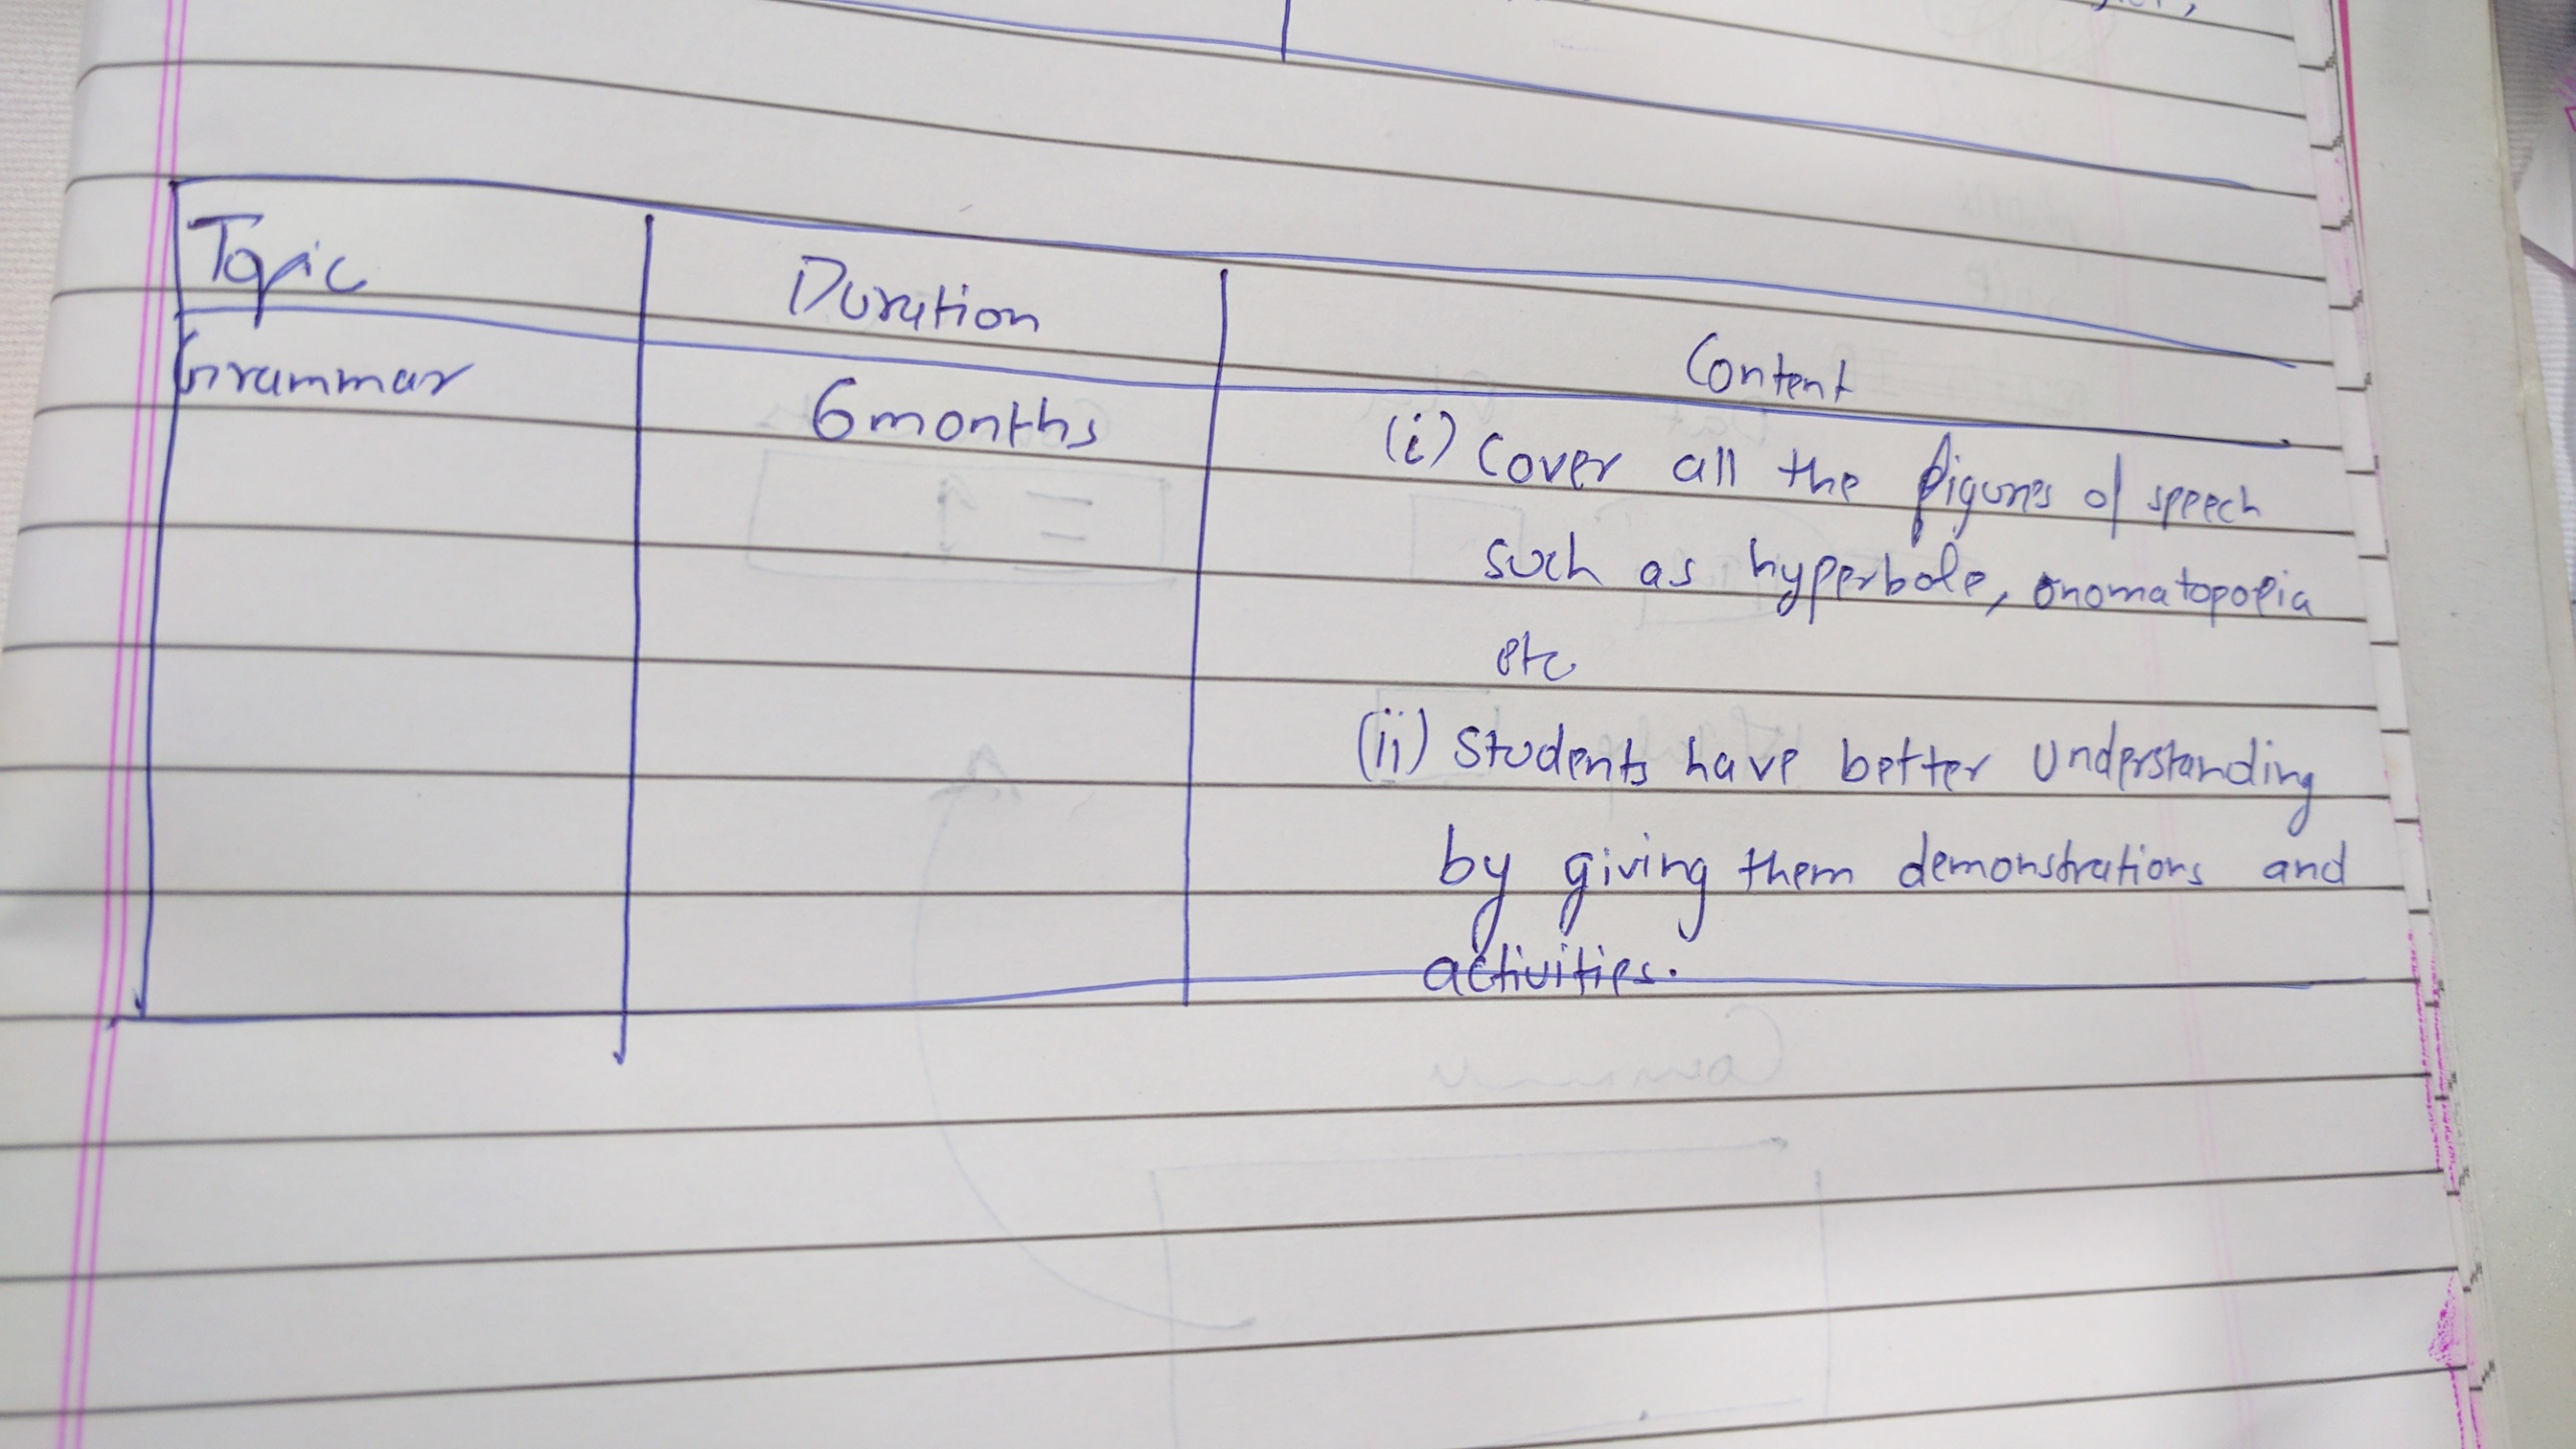 Topic
Duration
Content
Grammar
6 months
(i) Cover all the figures of speech
such as hyperbole, onomatopoeia
etc
(ii) Students have better understanding
by giving them demonstrations and
activities.